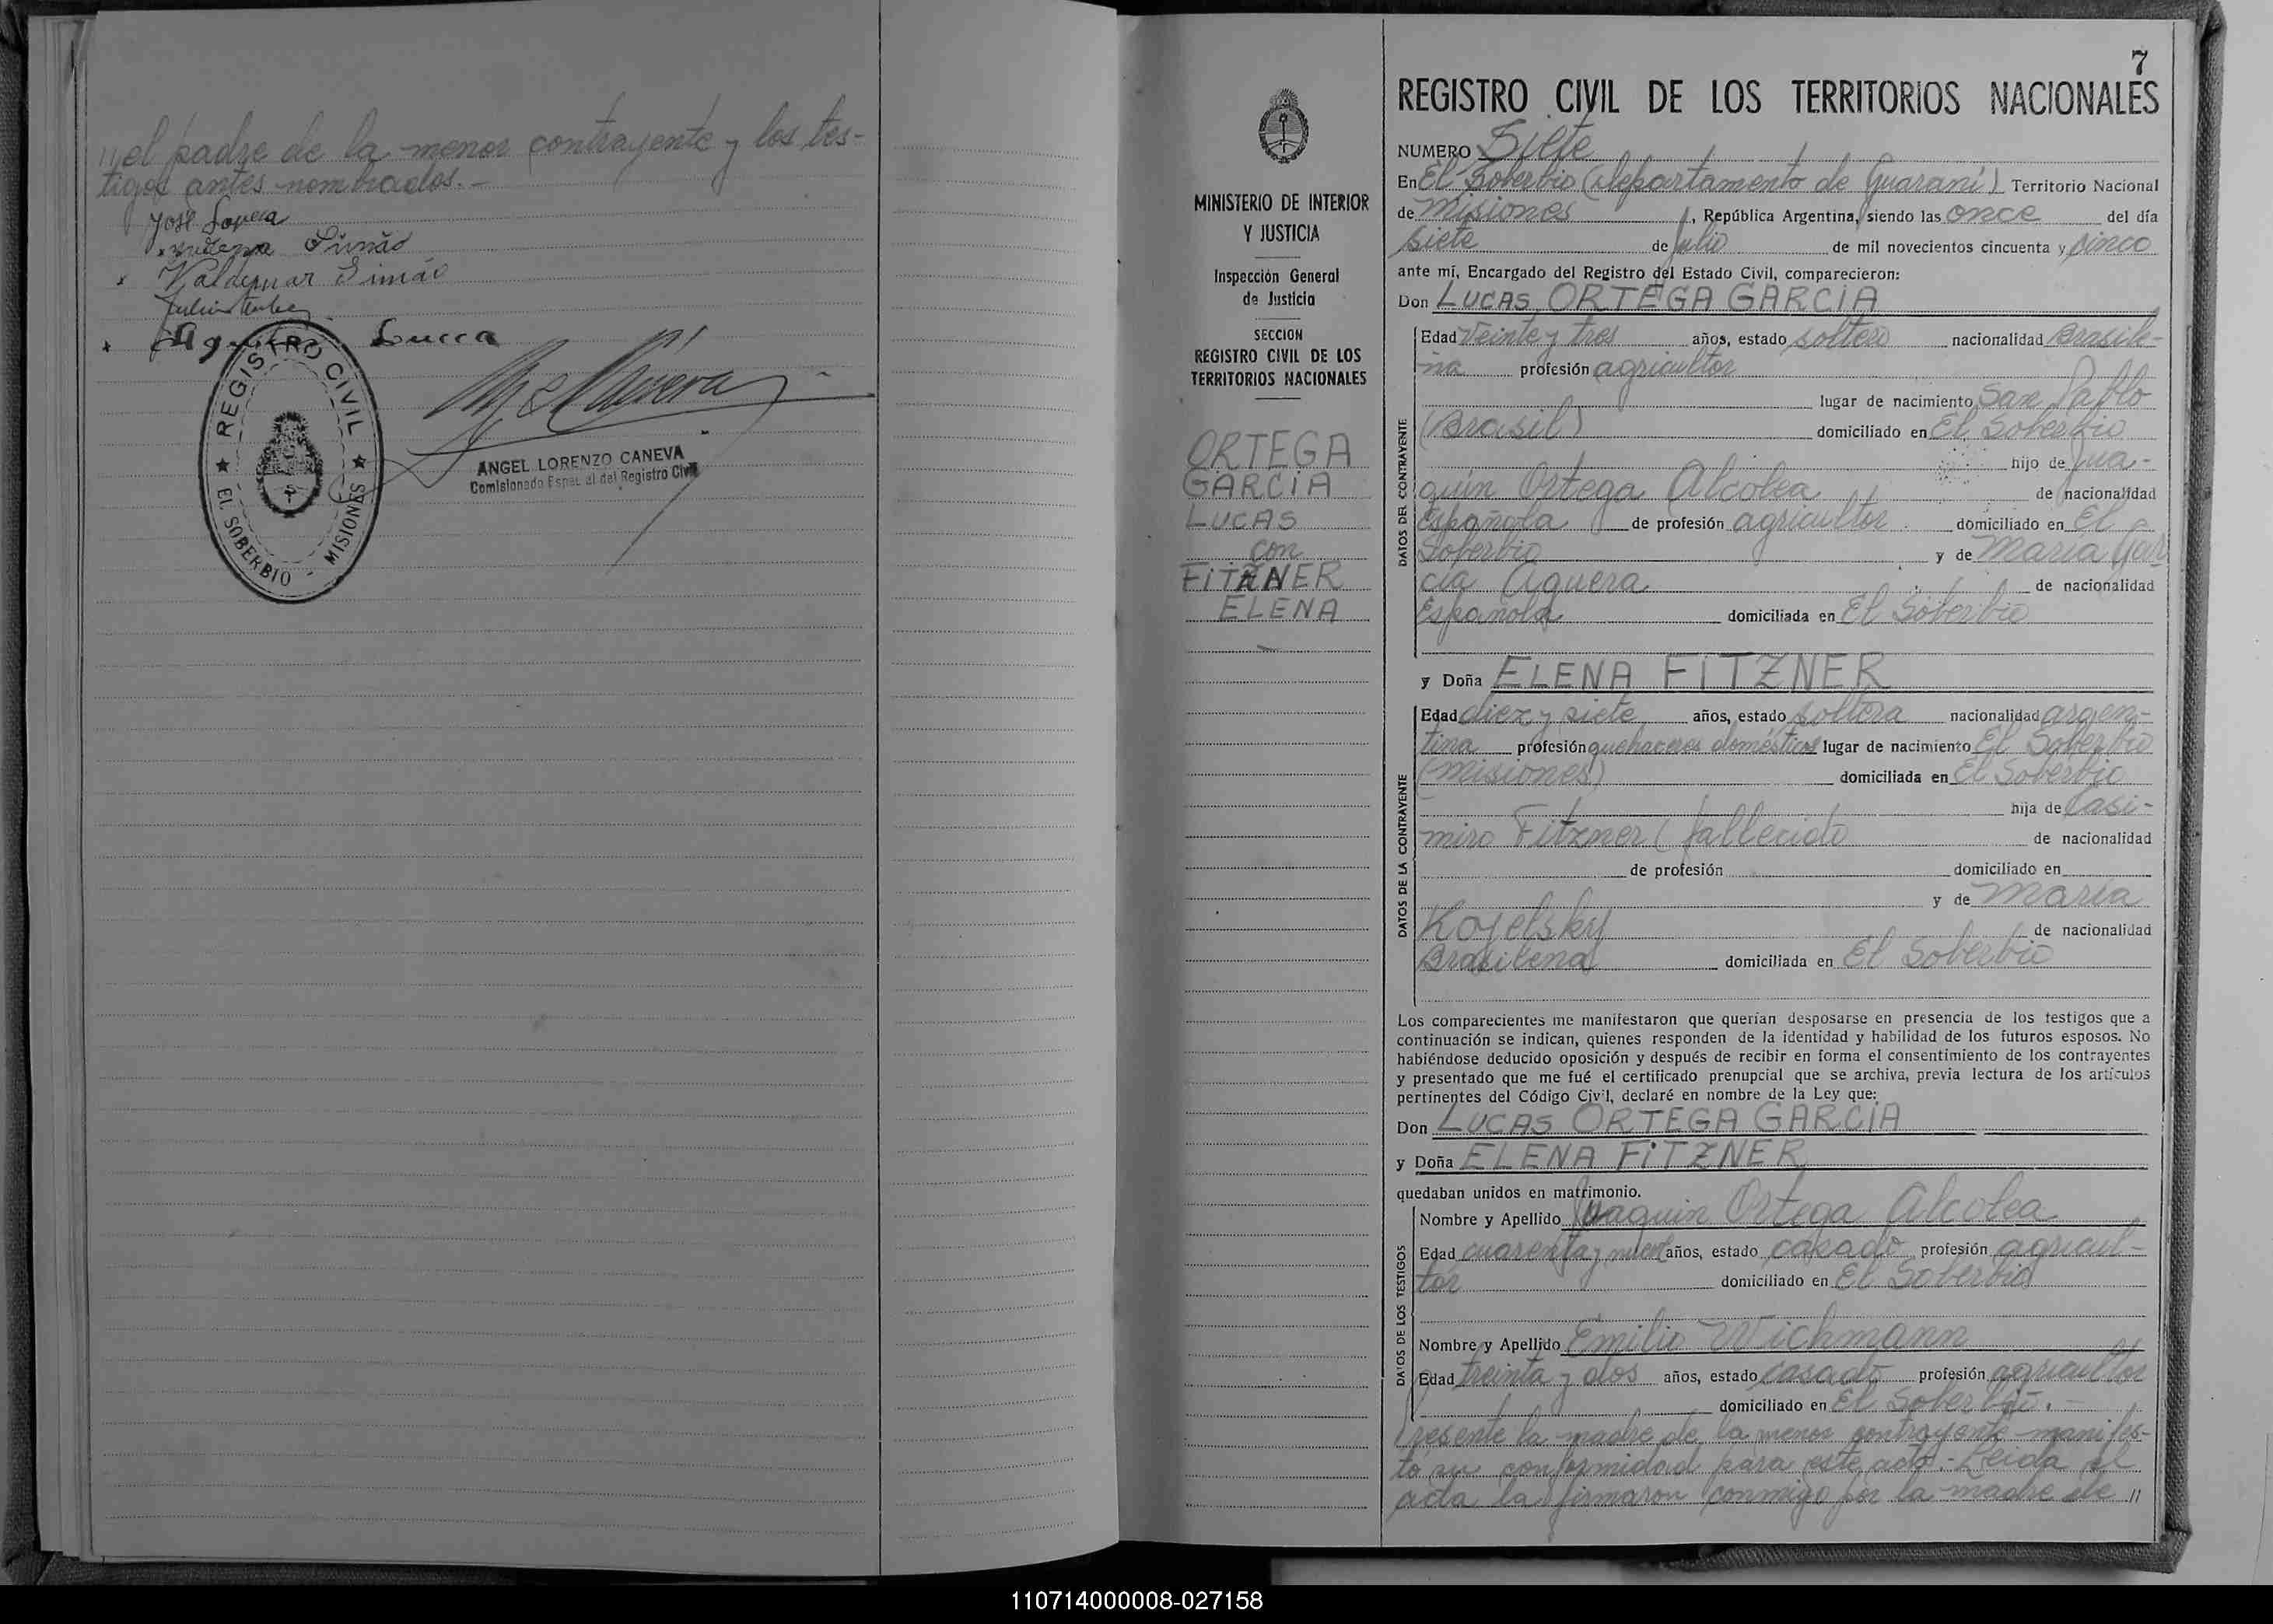 // el padre de la menor contrayente y los tes-
tigos antes nombrados.-
José
Simão
x Valdemar Simão
Lucca
REGISTRO CIVIL
EL SOBERBIO - MISIONES
ANGEL LORENZO CANEVA
Comisionado Especial del Registro Civil
7
MINISTERIO DE INTERIOR
Y JUSTICIA
Inspección General
de Justicia
SECCION
REGISTRO CIVIL DE LOS
TERRITORIOS NACIONALES
ORTEGA
GARCIA
LUCAS
con
FITZNER
ELENA
REGISTRO CIVIL DE LOS TERRITORIOS NACIONALES
NUMERO Siete
En El Soberbio (departamento de Guaraní) Territorio Nacional
de Misiones, República Argentina, siendo las once del día
siete de julio de mil novecientos cincuenta y cinco
ante mí, Encargado del Registro del Estado Civil, comparecieron:
Don LUCAS ORTEGA GARCIA
DATOS DEL CONTRAYENTE
Edad Veinte y tres años, estado soltero nacionalidad Brasile-
ña profesión agricultor
lugar de nacimiento San Pablo
(Brasil) domiciliado en El Soberbio
hijo de Jua-
quin Ortega Alcolea de nacionalidad
Española de profesión agricultor domiciliado en El
Soberbio y de María Gar
cía Aguera de nacionalidad
Española domiciliada en El Soberbio
y Doña ELENA FITZNER
DATOS DE LA CONTRAYENTE
Edad diez y siete años, estado soltera nacionalidad argen-
tina profesión quehaceres domésticos lugar de nacimiento El Soberbio
(Misiones) domiciliada en El Soberbio
hija de Casi-
miro Fitzner (fallecido de nacionalidad
de profesión domiciliado en
y de María
de nacionalidad
Brasilena domiciliada en El Soberbio
Los comparecientes me manifestaron que querían desposarse en presencia de los testigos que a
continuación se indican, quienes responden de la identidad y habilidad de los futuros esposos. No
habiéndose deducido oposición y después de recibir en forma el consentimiento de los contrayentes
y presentado que me fué el certificado prenupcial que se archiva, previa lectura de los artículos
pertinentes del Código Civil, declaré en nombre de la Ley que:
Don LUCAS ORTEGA GARCIA
y Doña ELENA FITZNER
quedaban unidos en matrimonio.
DATOS DE LOS TESTIGOS
Nombre y Apellido Juaquin Ortega Alcolea
Edad cuarenta y nueve años, estado casado profesión agricul-
tor domiciliado en El Soberbio
Nombre y Apellido Emilio Wichmann
Edad treinta y dos años, estado casado profesión agricultor
domiciliado en El Soberbio.-
Presente la madre de la menor contrayente manifes-
to su conformidad para este acto.- Leida el
acta la firmaron conmigo por la madre de //
110714000008-027158